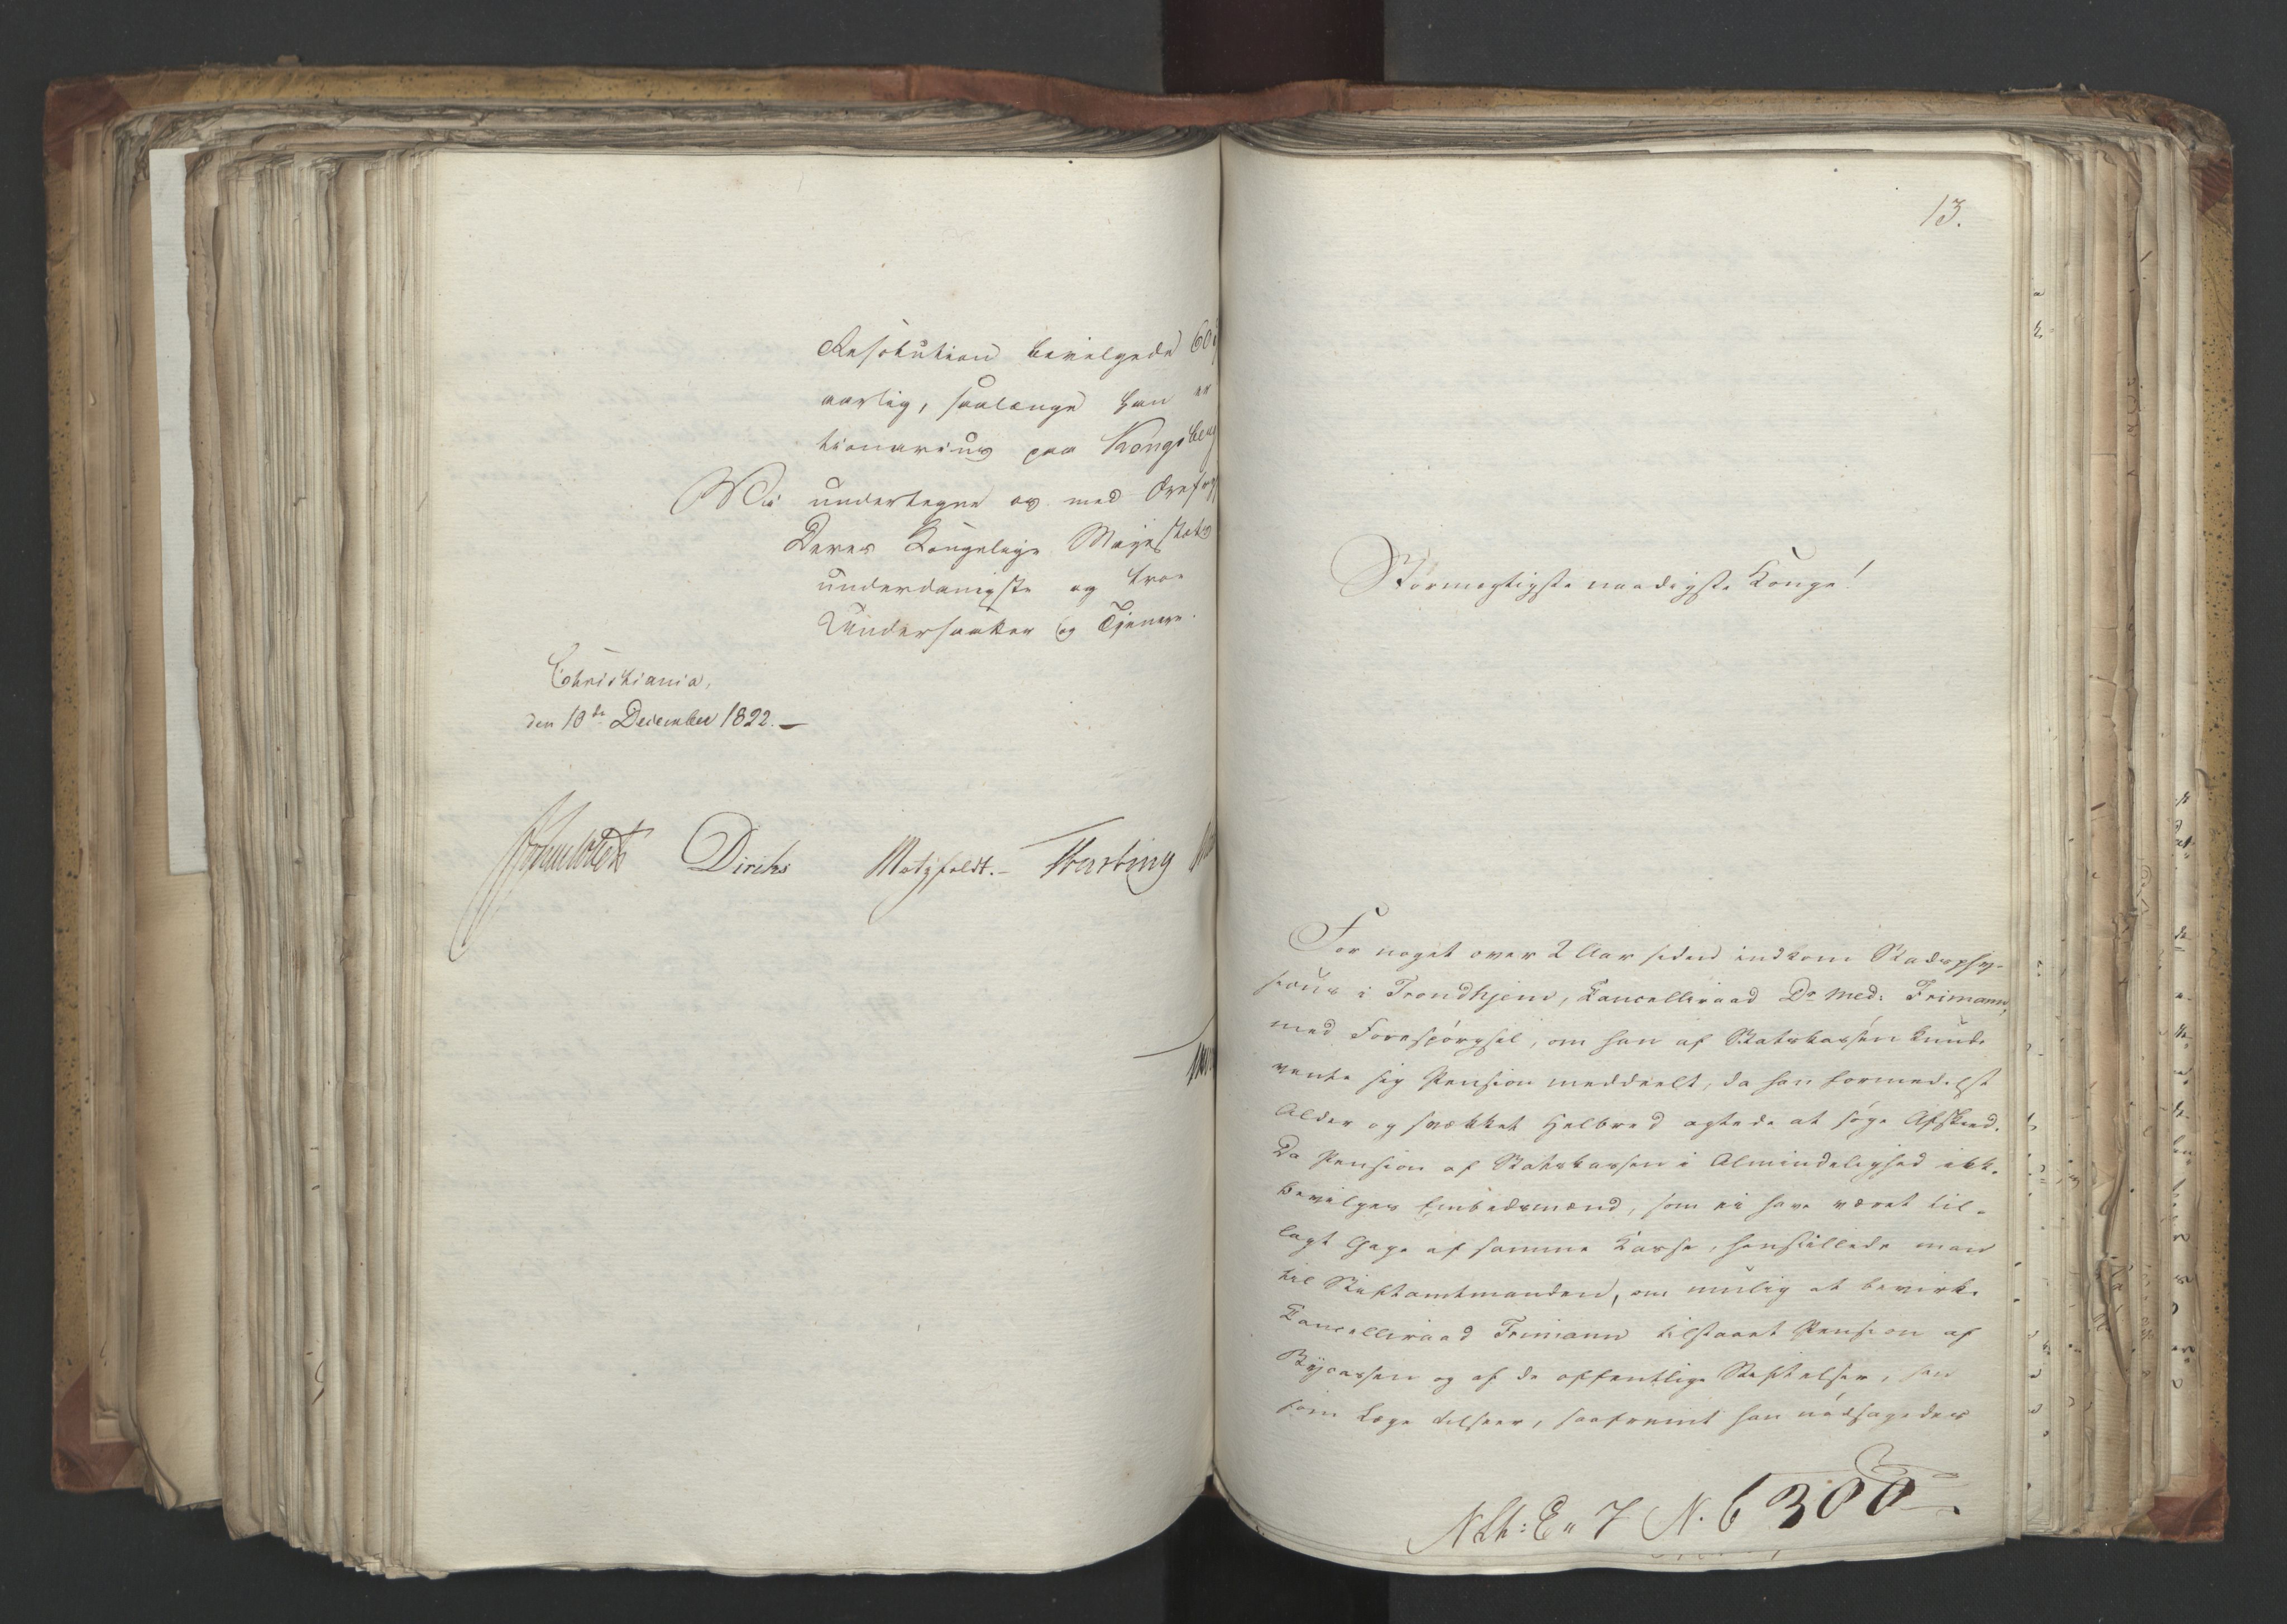 Resolution bevilgede 60
aarlig, saalænge han er
tionarius paa Kongsberg
Vi undertegne os med Ærefryg
Deres Kongelige Majestæts
underdanigste og troe
Undersaatter og Tjenere.
Christiania,
den 10de December 1822.
Diriks Motzfeldt. Hersleb
13.
Stormægtigste naadigste Konge!
For noget over 2 Aar siden indkom Stadsphy-
sicus i Trondhjem, Cancelliraad Dr. med: Frimann,
med Forespørgsel, om han af Statskassen kunde
vente sig Pension meddeelt, da han formedelst
Alder og svækket Helbred agtede at søge Afskeed.
Da Pension af Statskassen i Almindelighed ikke
bevilges Embedsmænd, som ei have været til-
lagt Gage af samme Kasse, henstillede man
til Stiftamtmanden, om mulig at bevirke
Cancelliraad Frimann tilstaaet Pension af
Bycassen og af de offentlige Stiftelser, han
som Læge tilseer, saafremt han nødsagedes
N. 6300